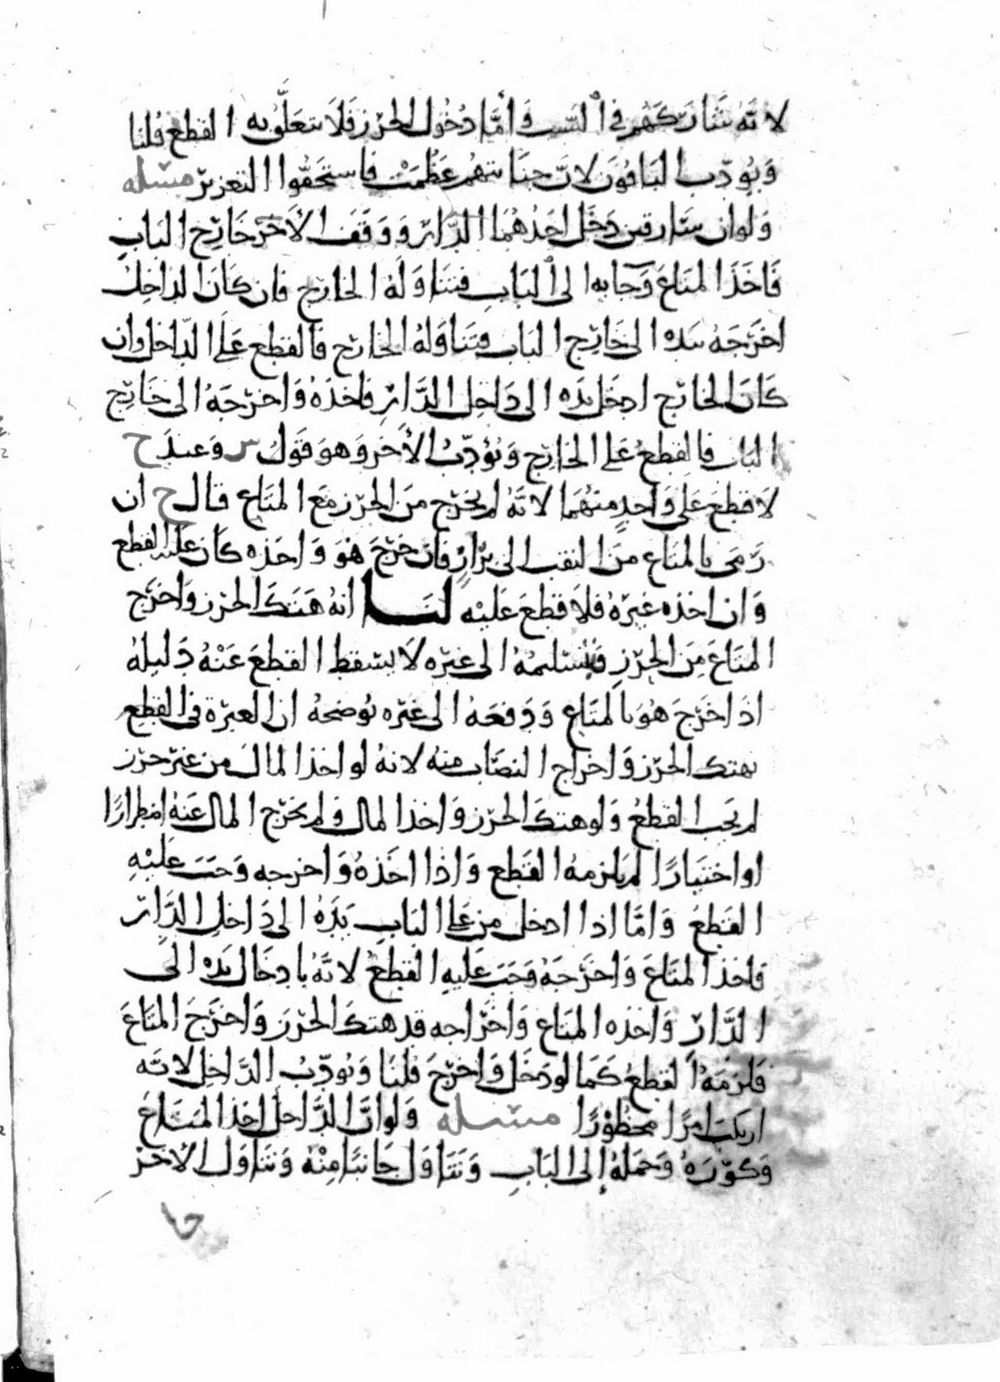 لانه شاركهم في السبب وأما دخول الحرز فلا يتعلق به القطع قلنا
ويؤدب الباقون لان جنايتهم عظمت فاستحقوا التعزير مسله
ولو ان سارقين دخل احدهما الدار ووقف الآخر خارج الباب
فاخذ المتاع وجا به الى الباب فتناوله الخارج فان كان الداخل
اخرجه بيده الى خارج الباب فتناوله الخارج فالقطع على الداخل وان
كان الخارج ادخل يده الى داخل الدار فاخذه واخرجه الى خارج
الباب فالقطع على الخارج ويؤدب الآخر وهو قول س وعند ح
لا قطع على واحد منهما لانه لم يخرج من الحرز مع المتاع قال ح ان
رمى بالمتاع من النقب الى برّا فان خرج هو واخذه كان عليه القطع
وان اخذه غيره فلا قطع عليه لنا انه هتك الحرز واخرج
المتاع من الحرز فتسليمه الى غيره لا يسقط القطع عنه دليله
اذا خرج هو بالمتاع ودفعه الى غيره يوضحه ان العبرة في القطع
بهتك الحرز واخراج النصاب منه لانه لو اخذ المال من غير حرز
لم يجب القطع ولو هتك الحرز واخذ المال ولم يخرج المال عنه اضطرارًا
او اختيارًا لم يلزمه القطع واذا اخذه واخرجه وجب عليه
القطع واما اذا ادخل من على الباب يده الى داخل الدار
فاخذ المتاع واخرجه وجب عليه القطع لانه بادخال يده الى
الدار واخذه المتاع واخراجه قد هتك الحرز واخرج المتاع
فلزمه القطع كما لو دخل واخرج قلنا ويؤدب الداخل لانه
ارتكب امرًا محظورًا مسله ولو ان الداخل اخذ المتاع
وكوّره وحمله إلى الباب وتناول جانبًا منه وتناول الآخر
جا